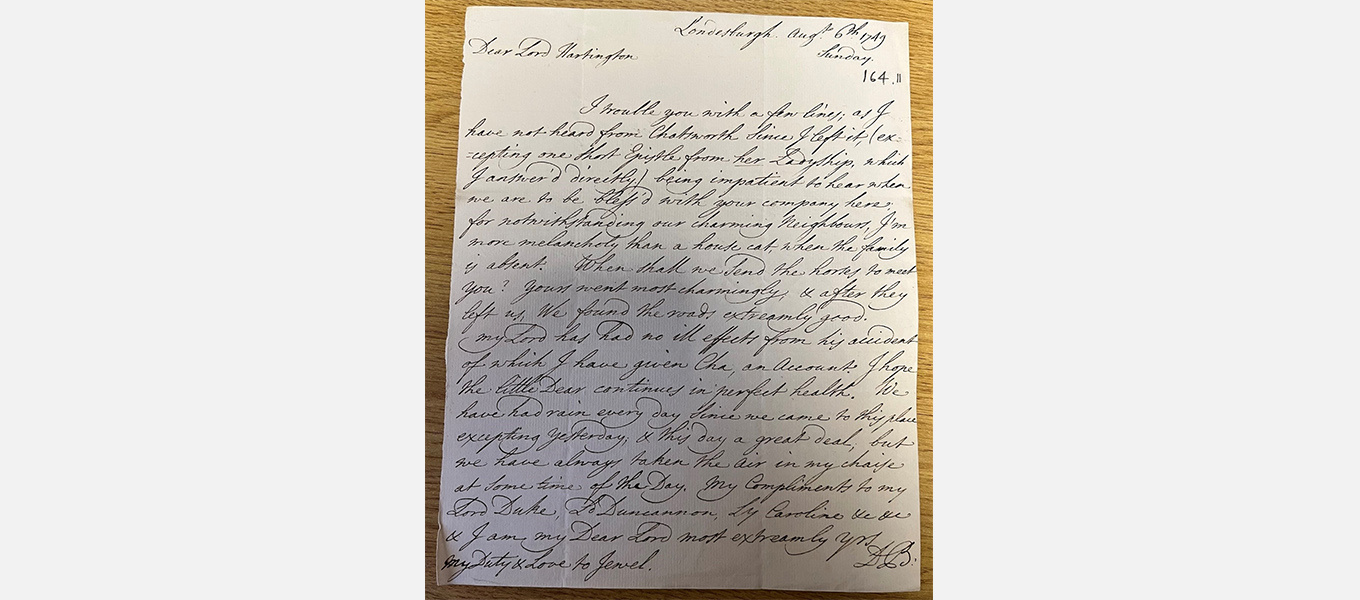 Londesburgh. Augst. 6th 1749
Dear Lord Hartington
Sunday.
164.11
I trouble you with a few lines, as I
have not heard from Chatsworth Since I left it, (ex-
=cepting one Short Epistle from her Ladyship, which
I answer'd directly) being impatient to hear when
we are to be bless'd with your company here,
for notwithstanding our charming Neighbours, I'm
more melancholy than a house cat, when the family
is absent. When shall we Send the horses to meet
You? Yours went most charmingly, & after they
left us, We found the roads extreamly good.
my Lord has had no ill effects from his accident
of which I have given Cha, an Account. I hope
the little Dear continues in perfect health. We
have had rain every day Since we came to this place
excepting Yesterday, & this day a great deal, but
we have always taken the Air in my chaise
at Some time of the Day. My Compliments to my
Lord Duke, Ld Duncannon, Ly Caroline &c &c
& I am my Dear Lord most extreamly Yrs.
My Duty & Love to Jewel. DB.